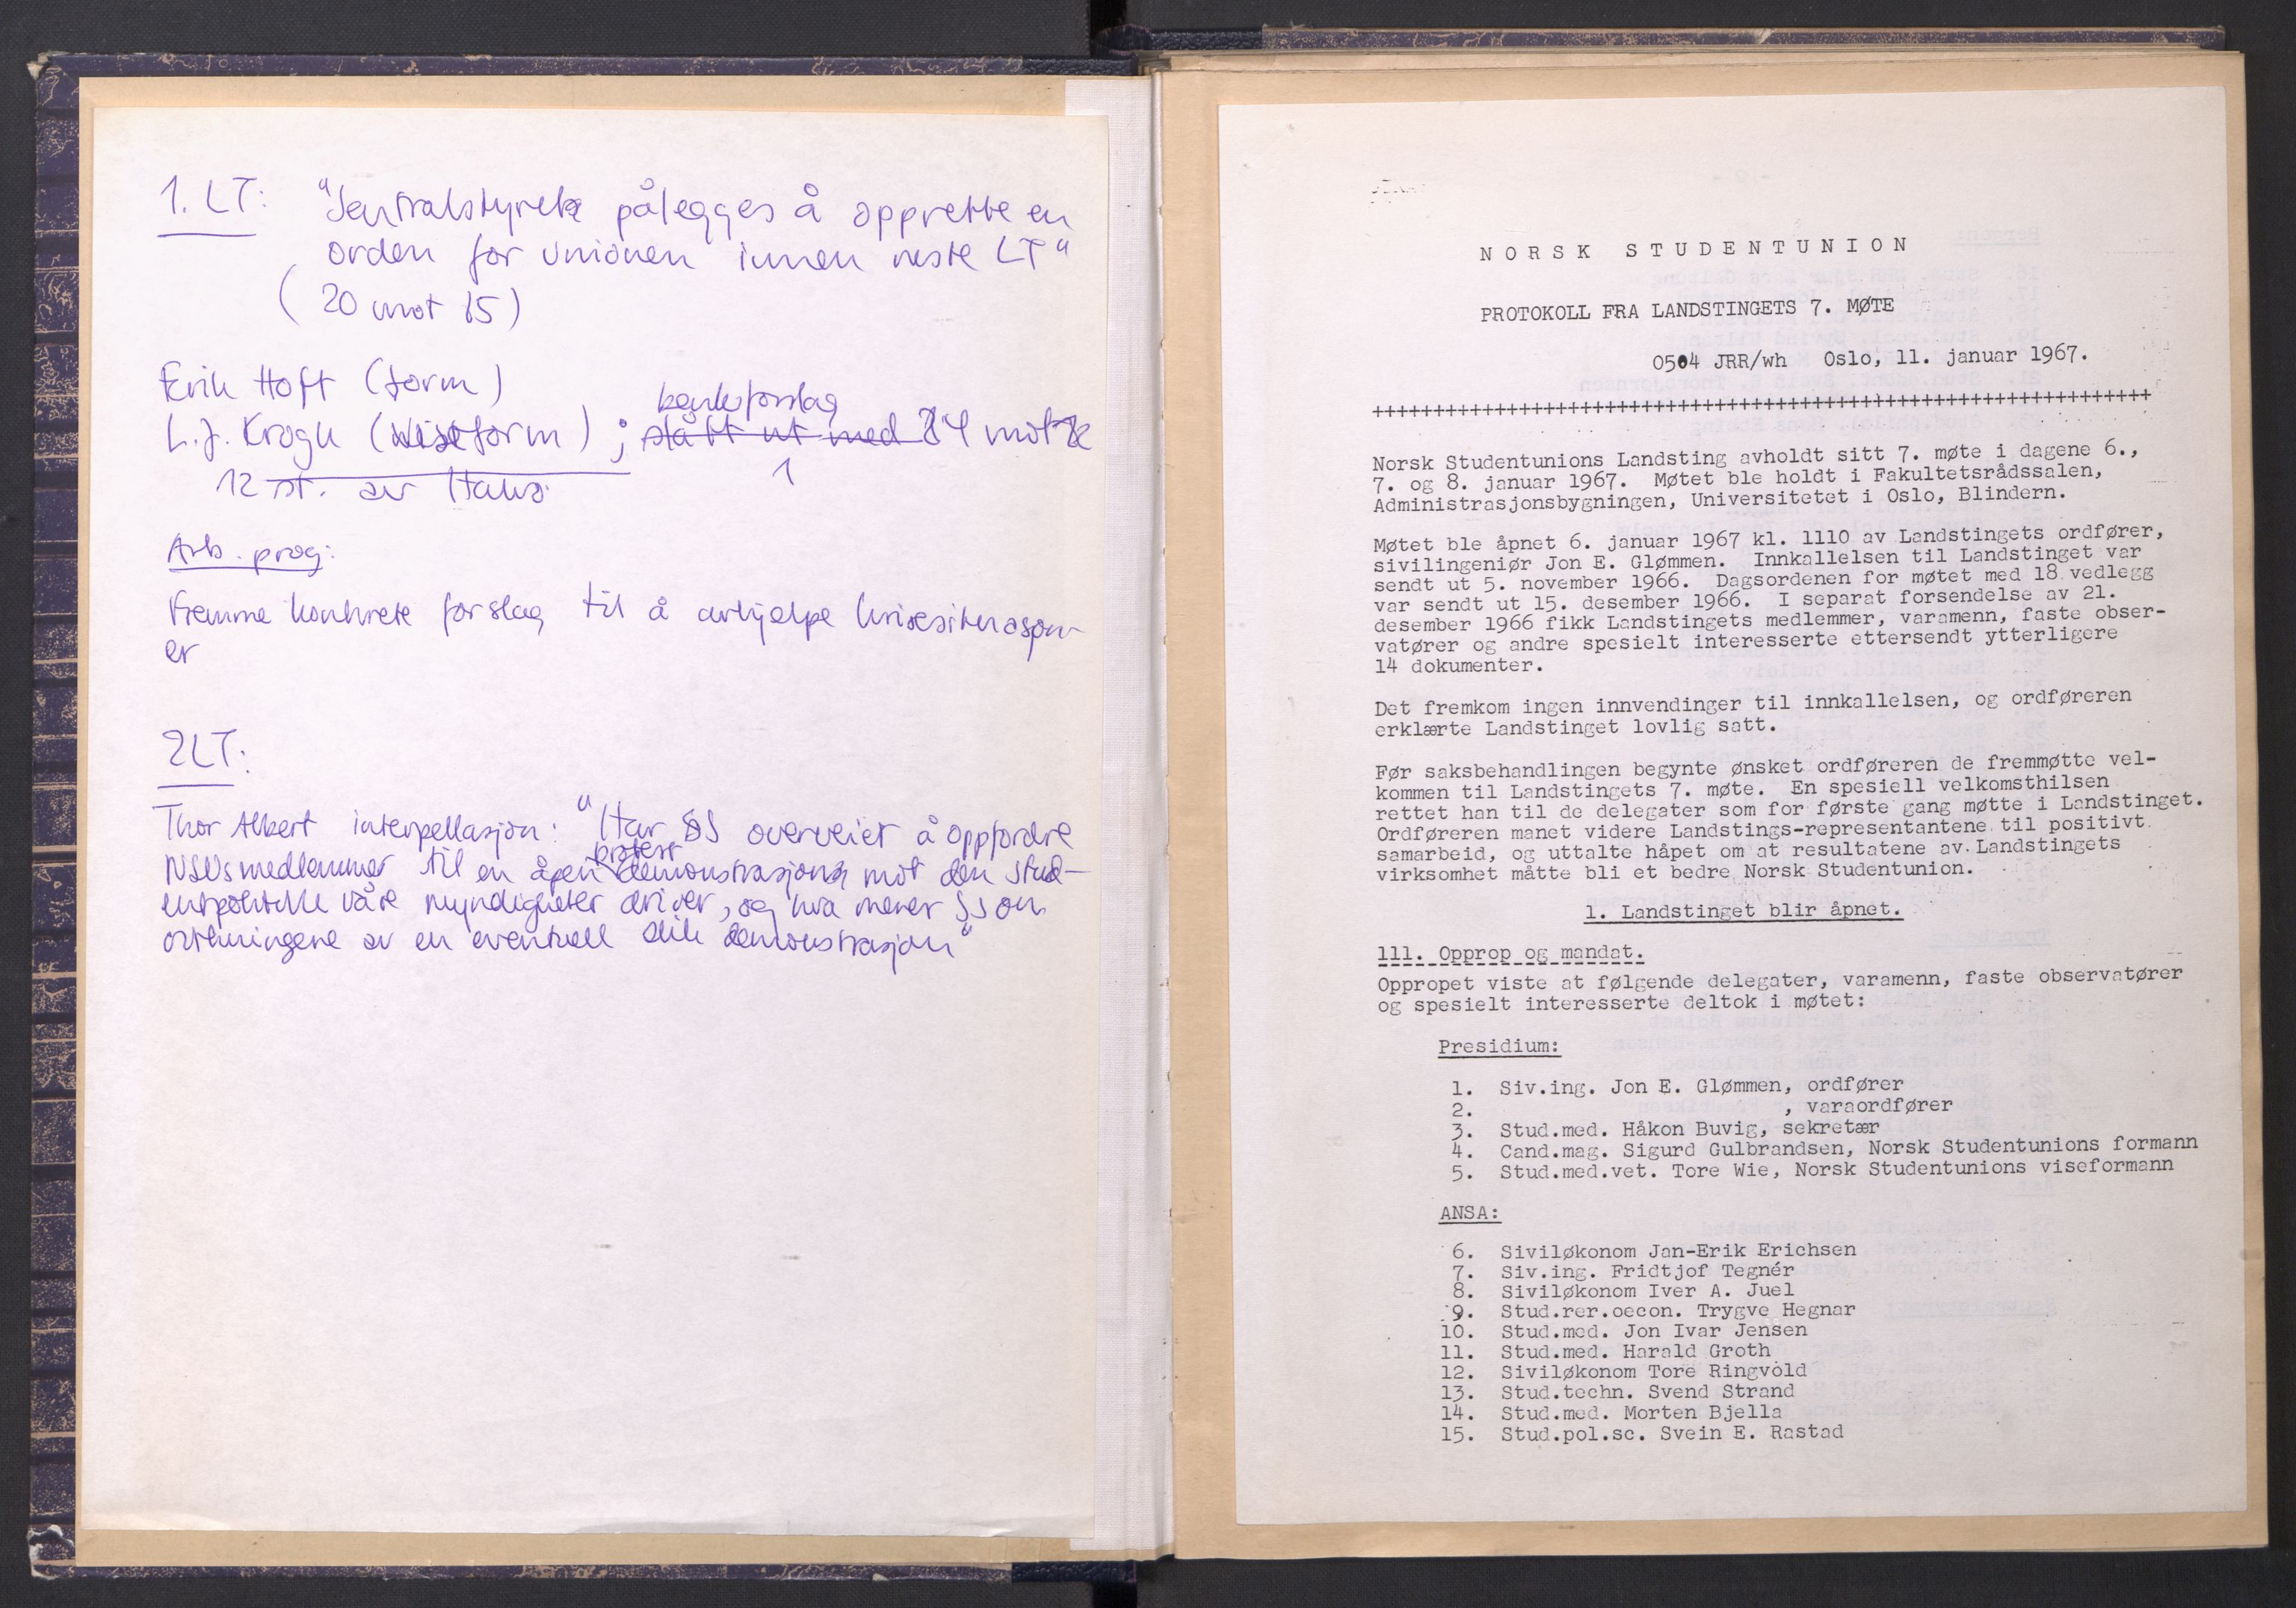 1. LT: "Sentralstyret pålegges å opprette en
orden for unionen innen neste LT"
(20 mot 15)
Erik Hoft (form)
L.J. Krogh (viseform) ; slått ut med 84 mot
benkeforslag
12 st. av
1
Arb. prog:
Fremme konkrete forslag til å avhjelpe krisesituasjon-
er
2LT:
Thor Albert interpellasjon: "Har SS overveiet å oppfordre
NSUs medlemmer til en åpen protest demonstrasjon mot den stud-
entpolitikk våre myndigheter driver, og hva mener SS om
virkningene av en eventuell slik demonstrasjon"
NORSK STUDENTUNION
PROTOKOLL FRA LANDSTINGETS 7. MØTE
0504 JRR/wh Oslo, 11. januar 1967.
++++++++++++++++++++++++++++++++++++++++++++++++++++++++++++++++
Norsk Studentunions Landsting avholdt sitt 7. møte i dagene 6.,
7. og 8. januar 1967. Møtet ble holdt i Fakultetsrådssalen,
Administrasjonsbygningen, Universitetet i Oslo, Blindern.
Møtet ble åpnet 6. januar 1967 kl. 1110 av Landstingets ordfører,
sivilingeniør Jon E. Glømmen. Innkallelsen til Landstinget var
sendt ut 5. november 1966. Dagsordenen for møtet med 18 vedlegg
var sendt ut 15. desember 1966. I separat forsendelse av 21.
desember 1966 fikk Landstingets medlemmer, varamenn, faste obser-
vatører og andre spesielt interesserte ettersendt ytterligere
14 dokumenter.
Det fremkom ingen innvendinger til innkallelsen, og ordføreren
erklærte Landstinget lovlig satt.
Før saksbehandlingen begynte ønsket ordføreren de fremmøtte vel-
kommen til Landstingets 7. møte. En spesiell velkomsthilsen
rettet han til de delegater som for første gang møtte i Landstinget.
Ordføreren manet videre Landstings-representantene til positivt
samarbeid, og uttalte håpet om at resultatene av Landstingets
virksomhet måtte bli et bedre Norsk Studentunion.
1. Landstinget blir åpnet.
111. Opprop og mandat.
Oppropet viste at følgende delegater, varamenn, faste observatører
og spesielt interesserte deltok i møtet:
Presidium:
1. Siv.ing. Jon E. Glømmen, ordfører
2. , varaordfører
3. Stud.med. Håkon Buvig, sekretær
4. Cand.mag. Sigurd Gulbrandsen, Norsk Studentunions formann
5. Stud.med.vet. Tore Wie, Norsk Studentunions viseformann
ANSA:
6. Siviløkonom Jan-Erik Erichsen
7. Siv.ing. Fridtjof Tegnér
8. Siviløkonom Iver A. Juel
9. Stud.rer.oecon. Trygve Hegnar
10. Stud.med. Jon Ivar Jensen
11. Stud.med. Harald Groth
12. Siviløkonom Tore Ringvold
13. Stud.techn. Svend Strand
14. Stud.med. Morten Bjella
15. Stud.pol.sc. Svein E. Rastad